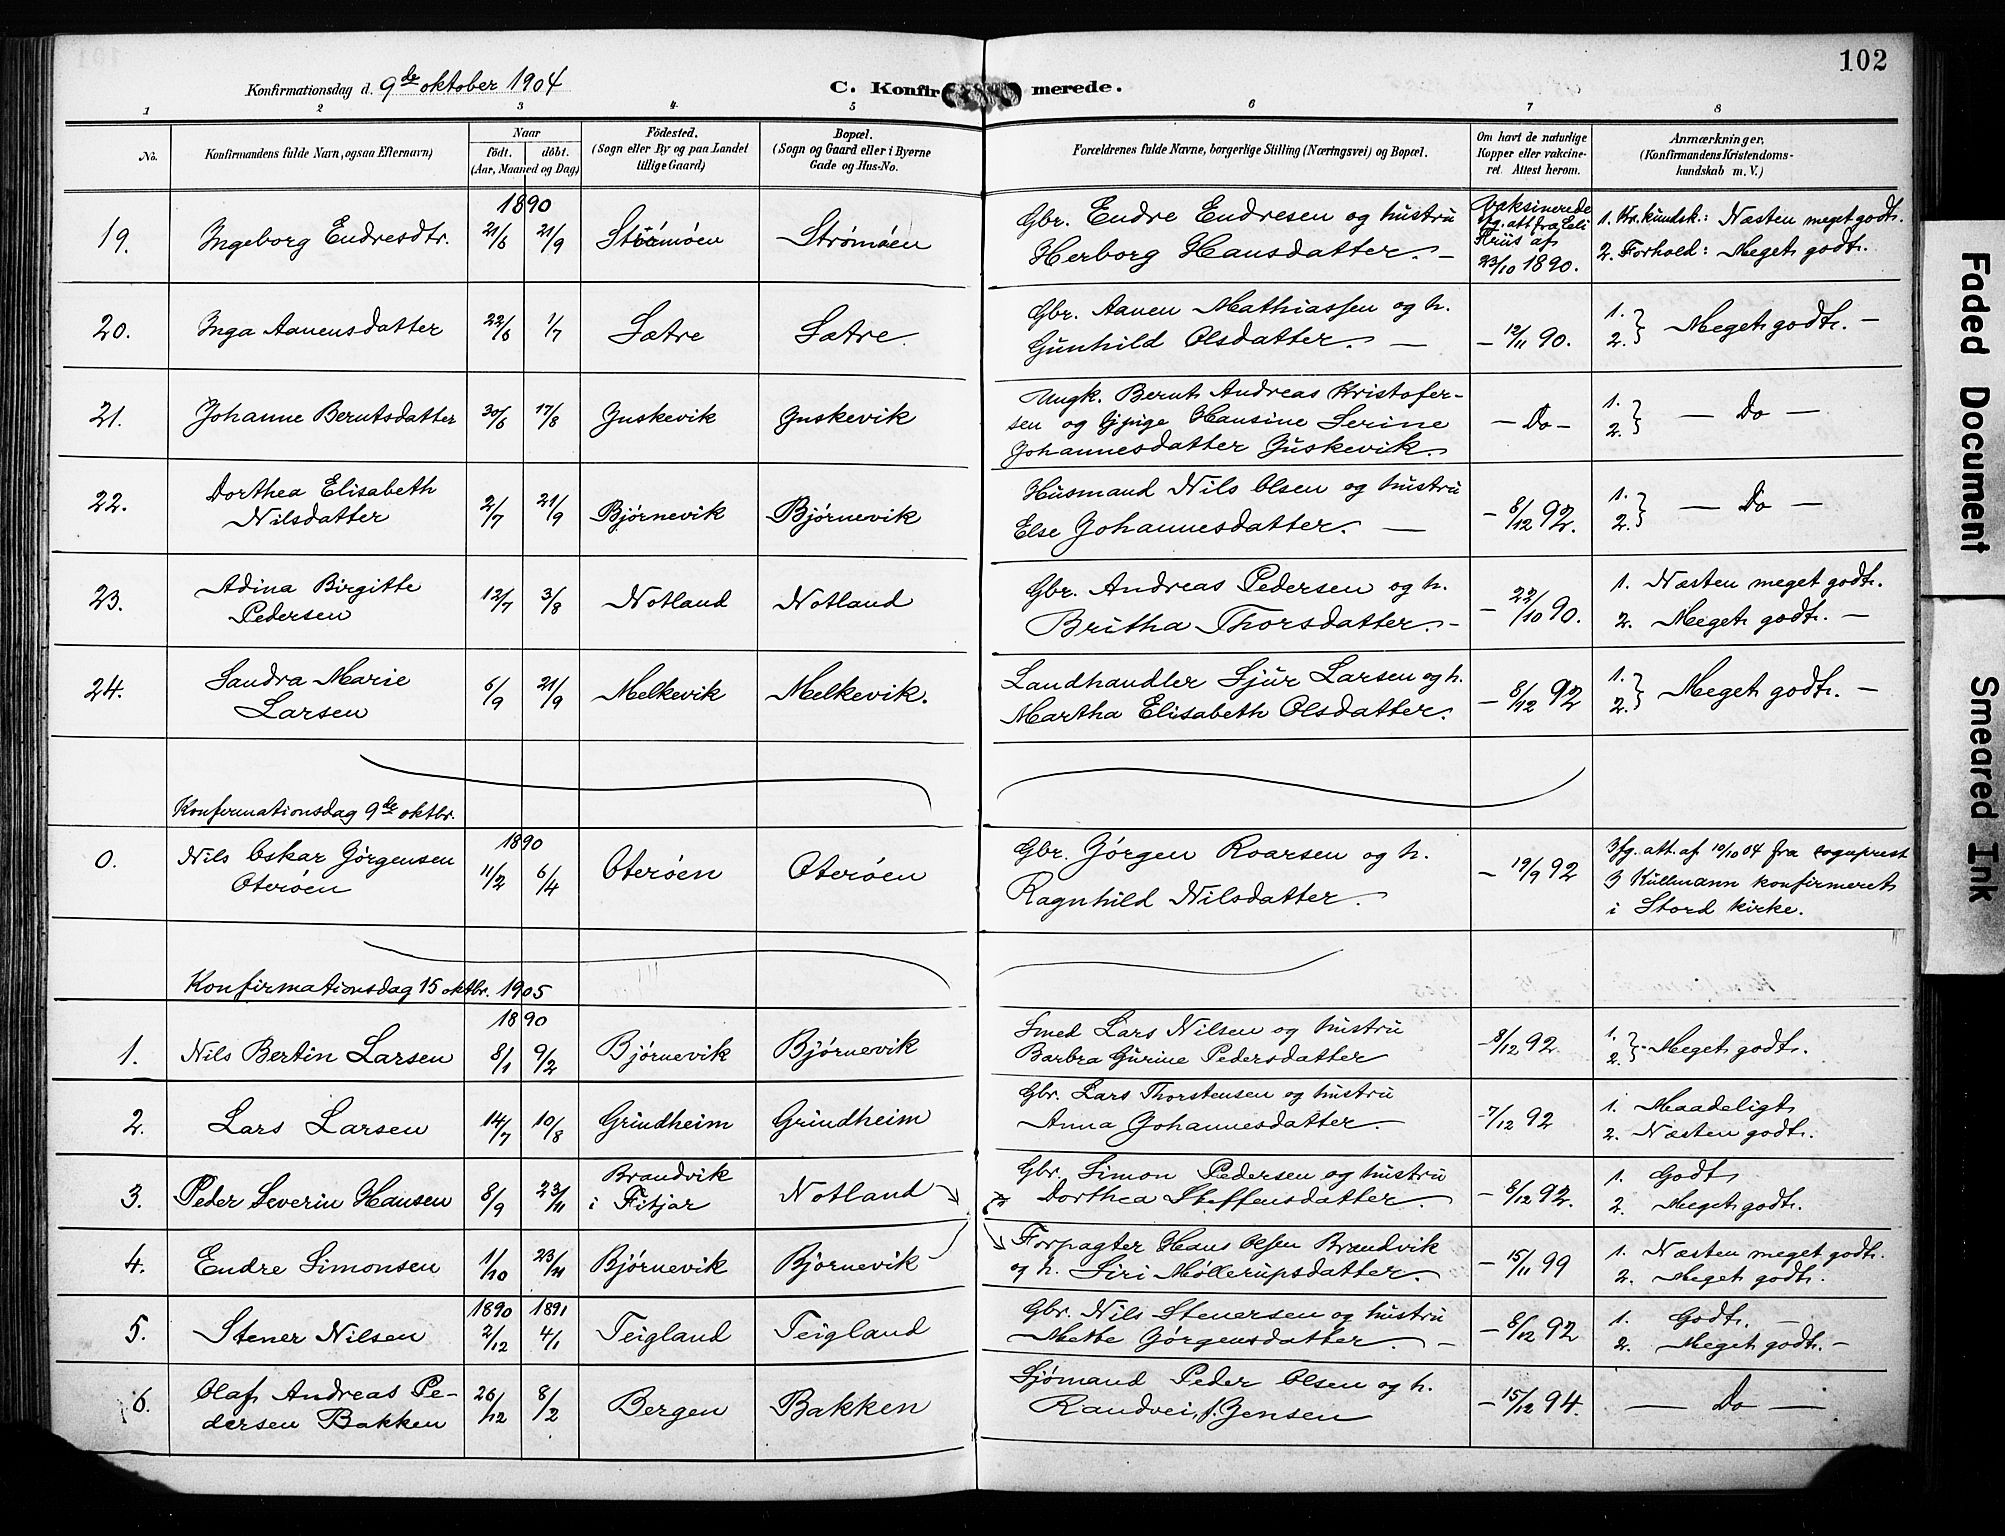 102
Konfirmationsdag d. 9de oktober 1904
C. Konfirmerede.
1 2 3 4 5 6 7 8
No.
Konfirmandens fulde Navn, ogsaa Efternavn)
Naar
födt. döbt.
(Aar, Maaned og Dag)
Födested.
(Sogn eller By og paa Landet
tillige Gaard)
Bopæl.
(Sogn og Gaard eller i Byerne
Gade og Hus-No.
Forældrenes fulde Navne, borgerlige Stilling (Næringsvei) og Bopæl.
Om havt de naturlige
Kopper eller vakcine-
ret. Attest herom.
Anmærkninger,
(Konfirmandens Kristendoms-
kundskab m. V.)
1890
19. Ingeborg Endresdtr. 21/6 21/9 Strømøen Strømøen
Gbr. Endre Endresen og hustru
Herborg Hansdatter. -
Vaksinerede
fg. att fra Eli
Huis af
23/10 1890.
1. Kr. kundsk.: Næsten meget godt.
2. Forhold: Meget godt.
20. Inga Aanensdatter 22/6 1/7 Sætre Sætre
Gbr. Aanen Mathiassen og h.
Gunhild Olsdatter. -
- 12/11 90.
1. 2. } Meget godt. -
21. Johanne Berntsdatter 30/6 17/8 Juskevik Juskevik
Ungk. Bernt Andreas Kristofer-
sen og Pige Hansine Serine
Johannesdatter Juskevik.
- Do -
1. 2. } - Do -
22. Dorthea Elisabeth
Nilsdatter 2/7 21/9 Bjørnevik Bjørnevik
Husmand Nils Olsen og hustru
Else Johannesdatter. -
- 8/12 92.
1. 2. } - Do -
23. Adina Birgitte
Pedersen 12/7 3/8 Notland Notland
Gbr. Andreas Pedersen og h.
Britha Thorsdatter. -
- 22/10 90.
1. Næsten meget godt.
2. Meget godt. -
24. Sandra Marie
Larsen 6/9 21/9 Melkevik Melkevik.
Landhandler Sjur Larsen og h.
Martha Elisabeth Olsdatter.
- 8/12 92
1. 2. } Meget godt. -
Konfirmationsdag 9de oktbr.
1890
0. Nils Oskar Jørgensen
Oterøen 11/2 6/4 Oterøen Oterøen
Gbr. Jørgen Roarsen og h.
Ragnhild Nilsdatter.
- 19/9 92
Ifg. att. af 10/10 04 fra sogneprest
J Kullmann konfirmeret
i Stord kirke.
Konfirmationsdag 15 oktbr. 1905
1890
1. Nils Bertin Larsen 8/1 9/2 Bjørnevik Bjørnevik
Smed Lars Nilsen og hustru
Barbra Gurine Pedersdatter
- 8/12 92
1. 2. } - Meget godt.
2. Lars Larsen 14/7 10/8 Grindheim Grindheim
Gbr. Lars Thorstensen og hustru
Anna Johannesdatter. -
- 7/12 92
1. Maadeligt
2. Næsten godt.
3. Peder Severin Hansen 8/9 23/11 Brandvik
i Fitjar Notland
Gbr. Simon Pedersen og hustru
Dorthea Steffensdatter.
- 8/12 92.
1. Godt
2. Meget godt.
4. Endre Simonsen 1/10 23/11 Bjørnevik Bjørnevik
Forpagter Hans Olsen Brandvik
og h. Siri Møllerupsdatter.
- 15/11 99
1. Næsten meget godt.
2. Meget godt.
1890 1891
5. Stener Nilsen 2/12 4/1 Teigland Teigland
Gbr. Nils Stenersen og hustru
Mette Jørgensdatter. -
- 8/12 92
1. Godt. -
2. Meget godt. -
6. Olaf Andreas Pe-
dersen Bakken 26/12 8/2 Bergen Bakken
Sjømand Peder Olsen og h.
Randvei, f. Jensen
- 15/12 94.
- Do -
Faded Document
Smeared Ink